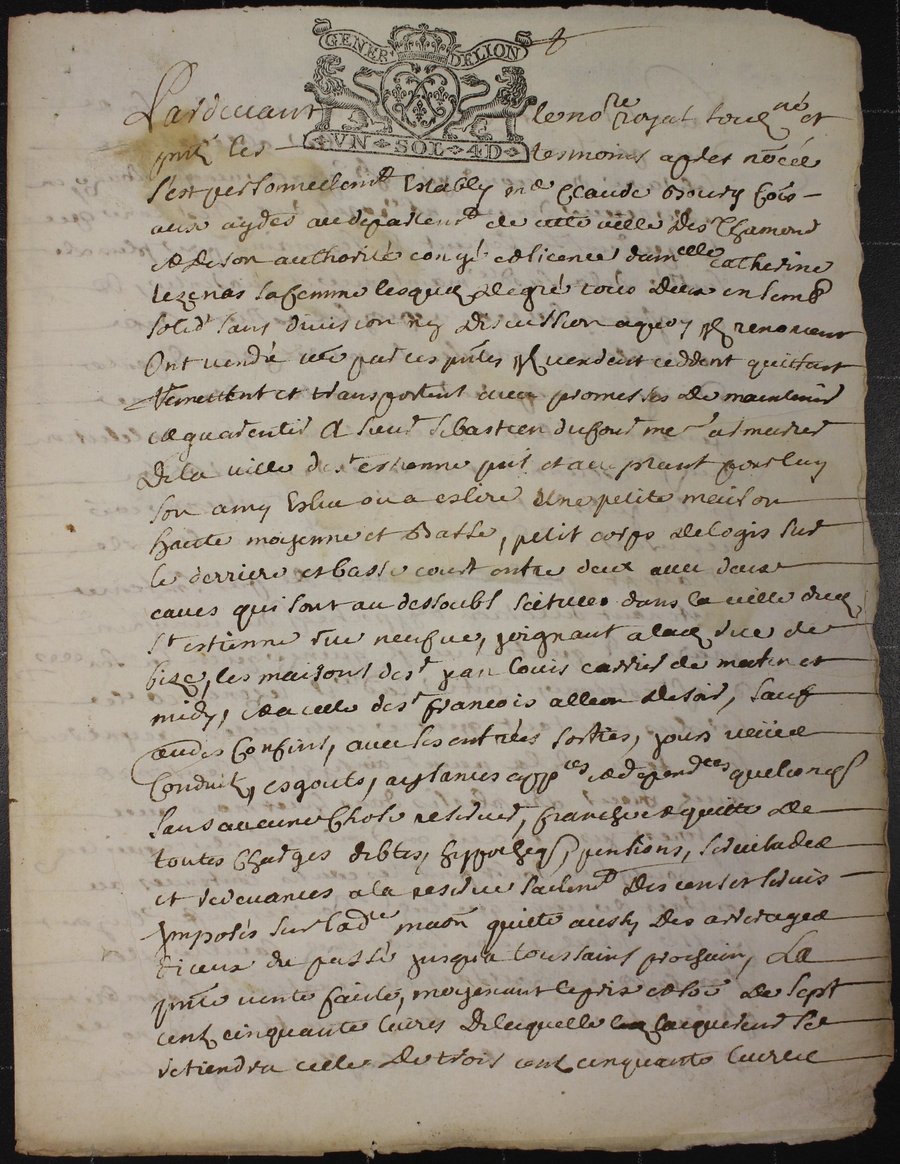 GENER DELION
VN SOL 4D
Pardevant le no.re royal soub.né et
p.ntz les tesmoins apres nõéz
sest personnellem.t estably m.e Claude Boury Cõis
aux aydes au departem.t de cette ville de S.t Chamond
et de son authorité congé et licence dam.elle Catherine
sa femme lesquelz de gré tous deux ensemb
solid. sans division ny discution a quoy ilz renoncent
Ont vendu par ces p.ntes ilz vendent ceddent quittent
remettent et transportent avec promesses de maintenir
et guarentir A sieur Sebastien dufour m.e armurier
De la ville de S.t estienne p.nt et acceptant pour luy
son amy eslu ou a eslire Une petite maison
haute moyenne et Basse, petit corps de logis sur
le derriere et basse court entre deux avec deux
caves qui sont au dessoubs scitues dans la ville dud.
S.t estienne rue neufve, joignant a lad. rue de
bize, les maisons de s.r jean louis carrier de matin et
midy, et a celle de s.r françois alleon de soir, sauf
Confins, avec ses entrées sorties, jours
Conduitz, esgouts, aysances app.ces et depend.ces quelconqs
sans aucune Chose reserver, franche et quitte de
toutes Charges debtes, hyppotheqs, pensions, servitudes
et redevances a la reserve seulem.t des cens et servis
Imposés sur lad.e maon quitte aussy des arrerages
diceux du passé jusqua toussaints prochain, La
p.nte vente faicte, moyenant le prix et sõe de sept
cent cinquante livres de laquelle lacquereur se
retiendra celle de trois cent cinquante livres